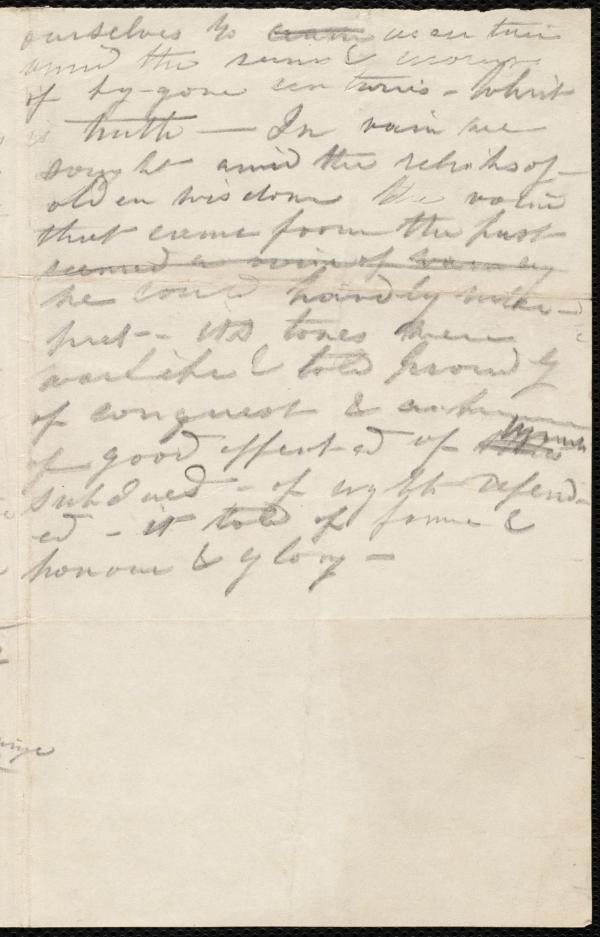 ourselves to ascertain
amid the ruins &
of by-gone centuries - what
is truth — In vain we
sought amid the relicks of
olden wisdom the voice
that came from the past
seemed a voice of
we could hardly inter-
pret - its tones were
warlike & told proudly
of conquest &
of good effected of wrongs
subdued - of right defend-
ed - it told of fame &
honour & glory -